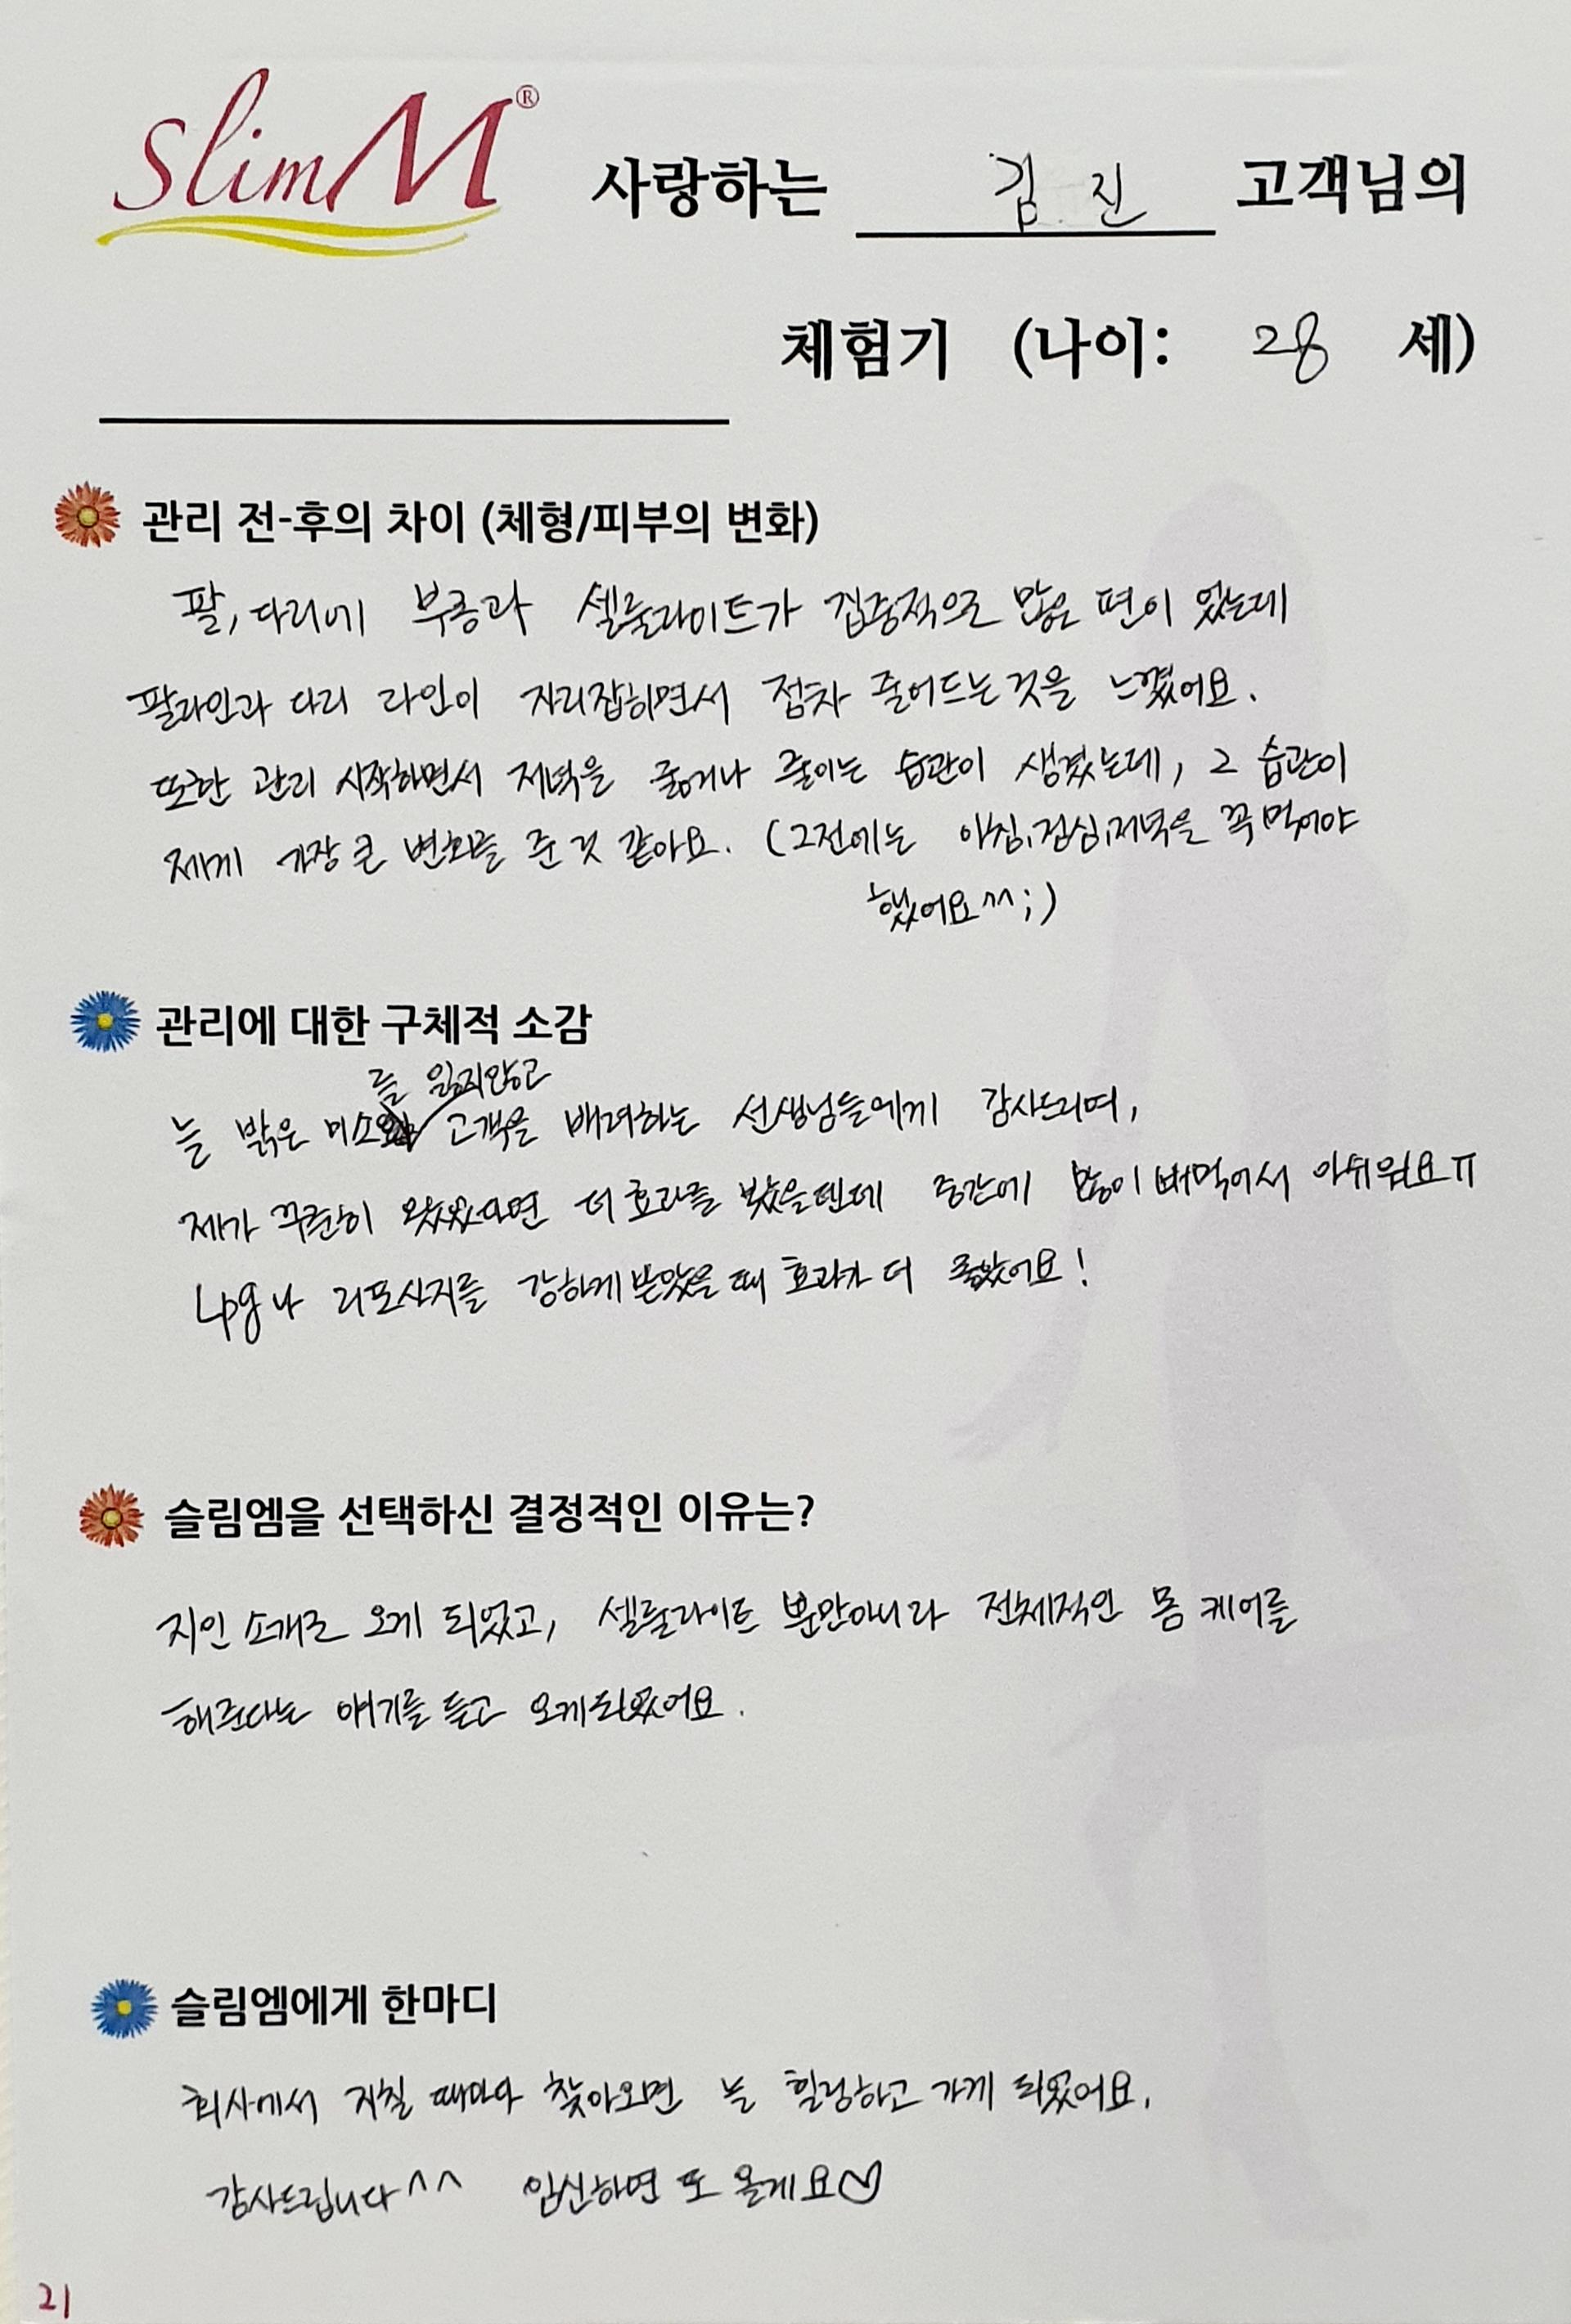 slimM® 사랑하는 김 진 고객님의
체험기 (나이: 28 세)
관리 전-후의 차이 (체형/피부의 변화)
팔, 다리에 부종과 셀룰라이트가 집중적으로 많은 편이 었는데
팔라인과 다리 라인이 자리잡히면서 점차 줄어드는것을 느꼈어요.
또한 관리 시작하면서 저녁을 굶거나 줄이는 습관이 생겼는데, 그 습관이
제게 가장 큰 변화를 준 것 같아요. (그전에는 아침,점심,저녁을 꼭 먹어야
했어요^^;)
관리에 대한 구체적 소감
를 잃지않고
늘 밝은 미소 고객을 배려하는 선생님들에게 감사드리며,
제가 꾸준히 왔었으면 더 효과를 봤을텐데 중간에 많이 빼먹어서 아쉬워요ㅠ
Lpg나 리포사지를 강하게 받았을 때 효과가 더 좋았어요!
슬림엠을 선택하신 결정적인 이유는?
지인 소개로 오게 되었고, 셀룰라이트 뿐만아니라 전체적인 몸 케어를
해준다는 얘기를 듣고 오게되었어요.
슬림엠에게 한마디
회사에서 지칠 때마다 찾아오면 늘 힐링하고 가게 되었어요.
감사드립니다^^ 임신하면 또 올게요♡
21